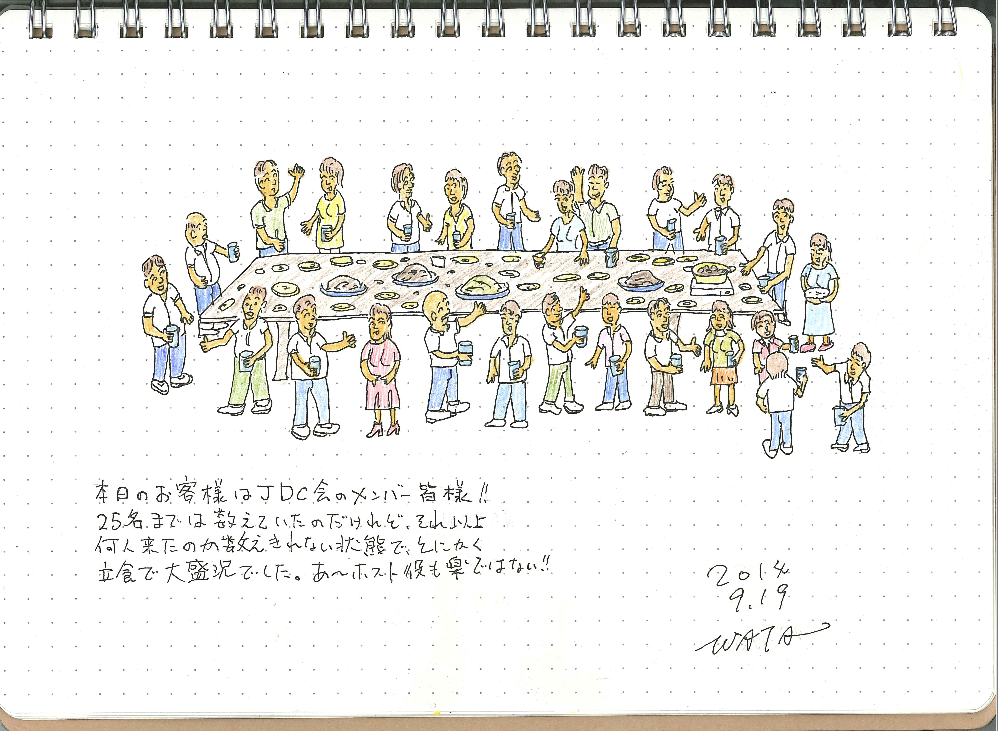 本日のお客様はJDC会のメンバー皆様!!
25名までは数えていたのだけれど、それ以上
何人来たのか数えきれない状態で、とにかく
立食で大盛況でした。あ〜ホスト役も楽ではない!!
2014
9.19
WATA